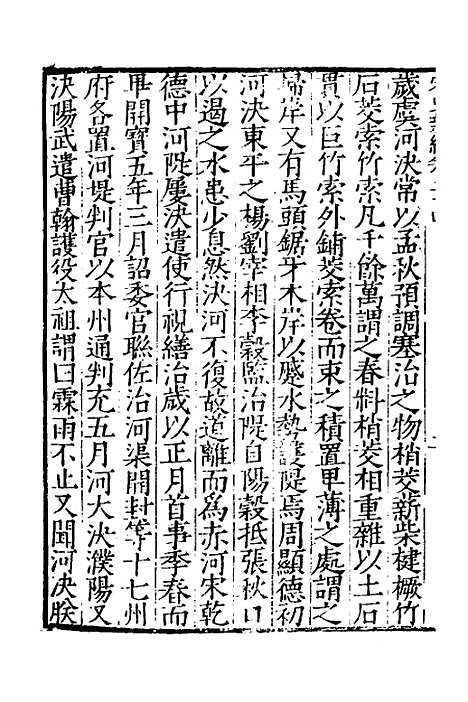 歲虞河決常以孟秋預調塞治之物梢茭薪柴楗橛竹
石茭索竹索凡千餘萬謂之春料梢茭相重雜以土石
貫以巨竹索外鋪茭索卷而束之積置甲薄之處謂之
埽岸又有馬頭鋸牙木岸以蹙水勢護隄焉周顯德初
河決東平之楊劉宰相李穀監治隄自陽穀抵張秋口
以遏之水患少息然決河不復故道離而爲赤河宋乾
德中河隄屢決遣使行視繕治歲以正月首事季春而
畢開寶五年三月詔委官聯佐治河渠開封等十七州
府各置河堤判官以本州通判充五月河大決濮陽又
決陽武遣曹翰護役太祖謂曰霖雨不止又聞河決朕